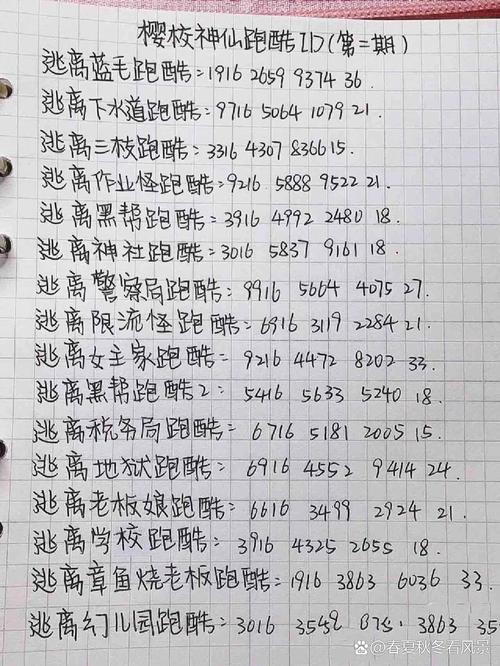 樱校神仙跑酷ID(第二期)
逃离蓝毛跑酷:1916 2659 9374 36.
逃离下水道跑酷:9716 5064 1079 21.
逃离三枝跑酷:3316 4307 8366 15.
逃离作业怪跑酷:9216 5888 9522 21.
逃离黑帮跑酷:3916 4992 2480 18.
逃离神社跑酷:3016 5837 9161 18.
逃离警察局跑酷:9916 5664 4075 27.
逃离限流怪跑酷:6916 3119 2284 21.
逃离女主家跑酷:9216 4472 8202 33.
逃离黑帮跑酷2:5416 5633 5240 18.
逃离税务局跑酷:6716 5181 2005 15.
逃离地狱跑酷:6916 4552 9414 24.
逃离老板娘跑酷:6616 3499 2924 21.
逃离学校跑酷:3916 4325 2655 18.
逃离章鱼烧老板跑酷:1916 3863 6036 33.
逃离幻儿园跑酷:3016 3863 35
春夏秋冬看风景